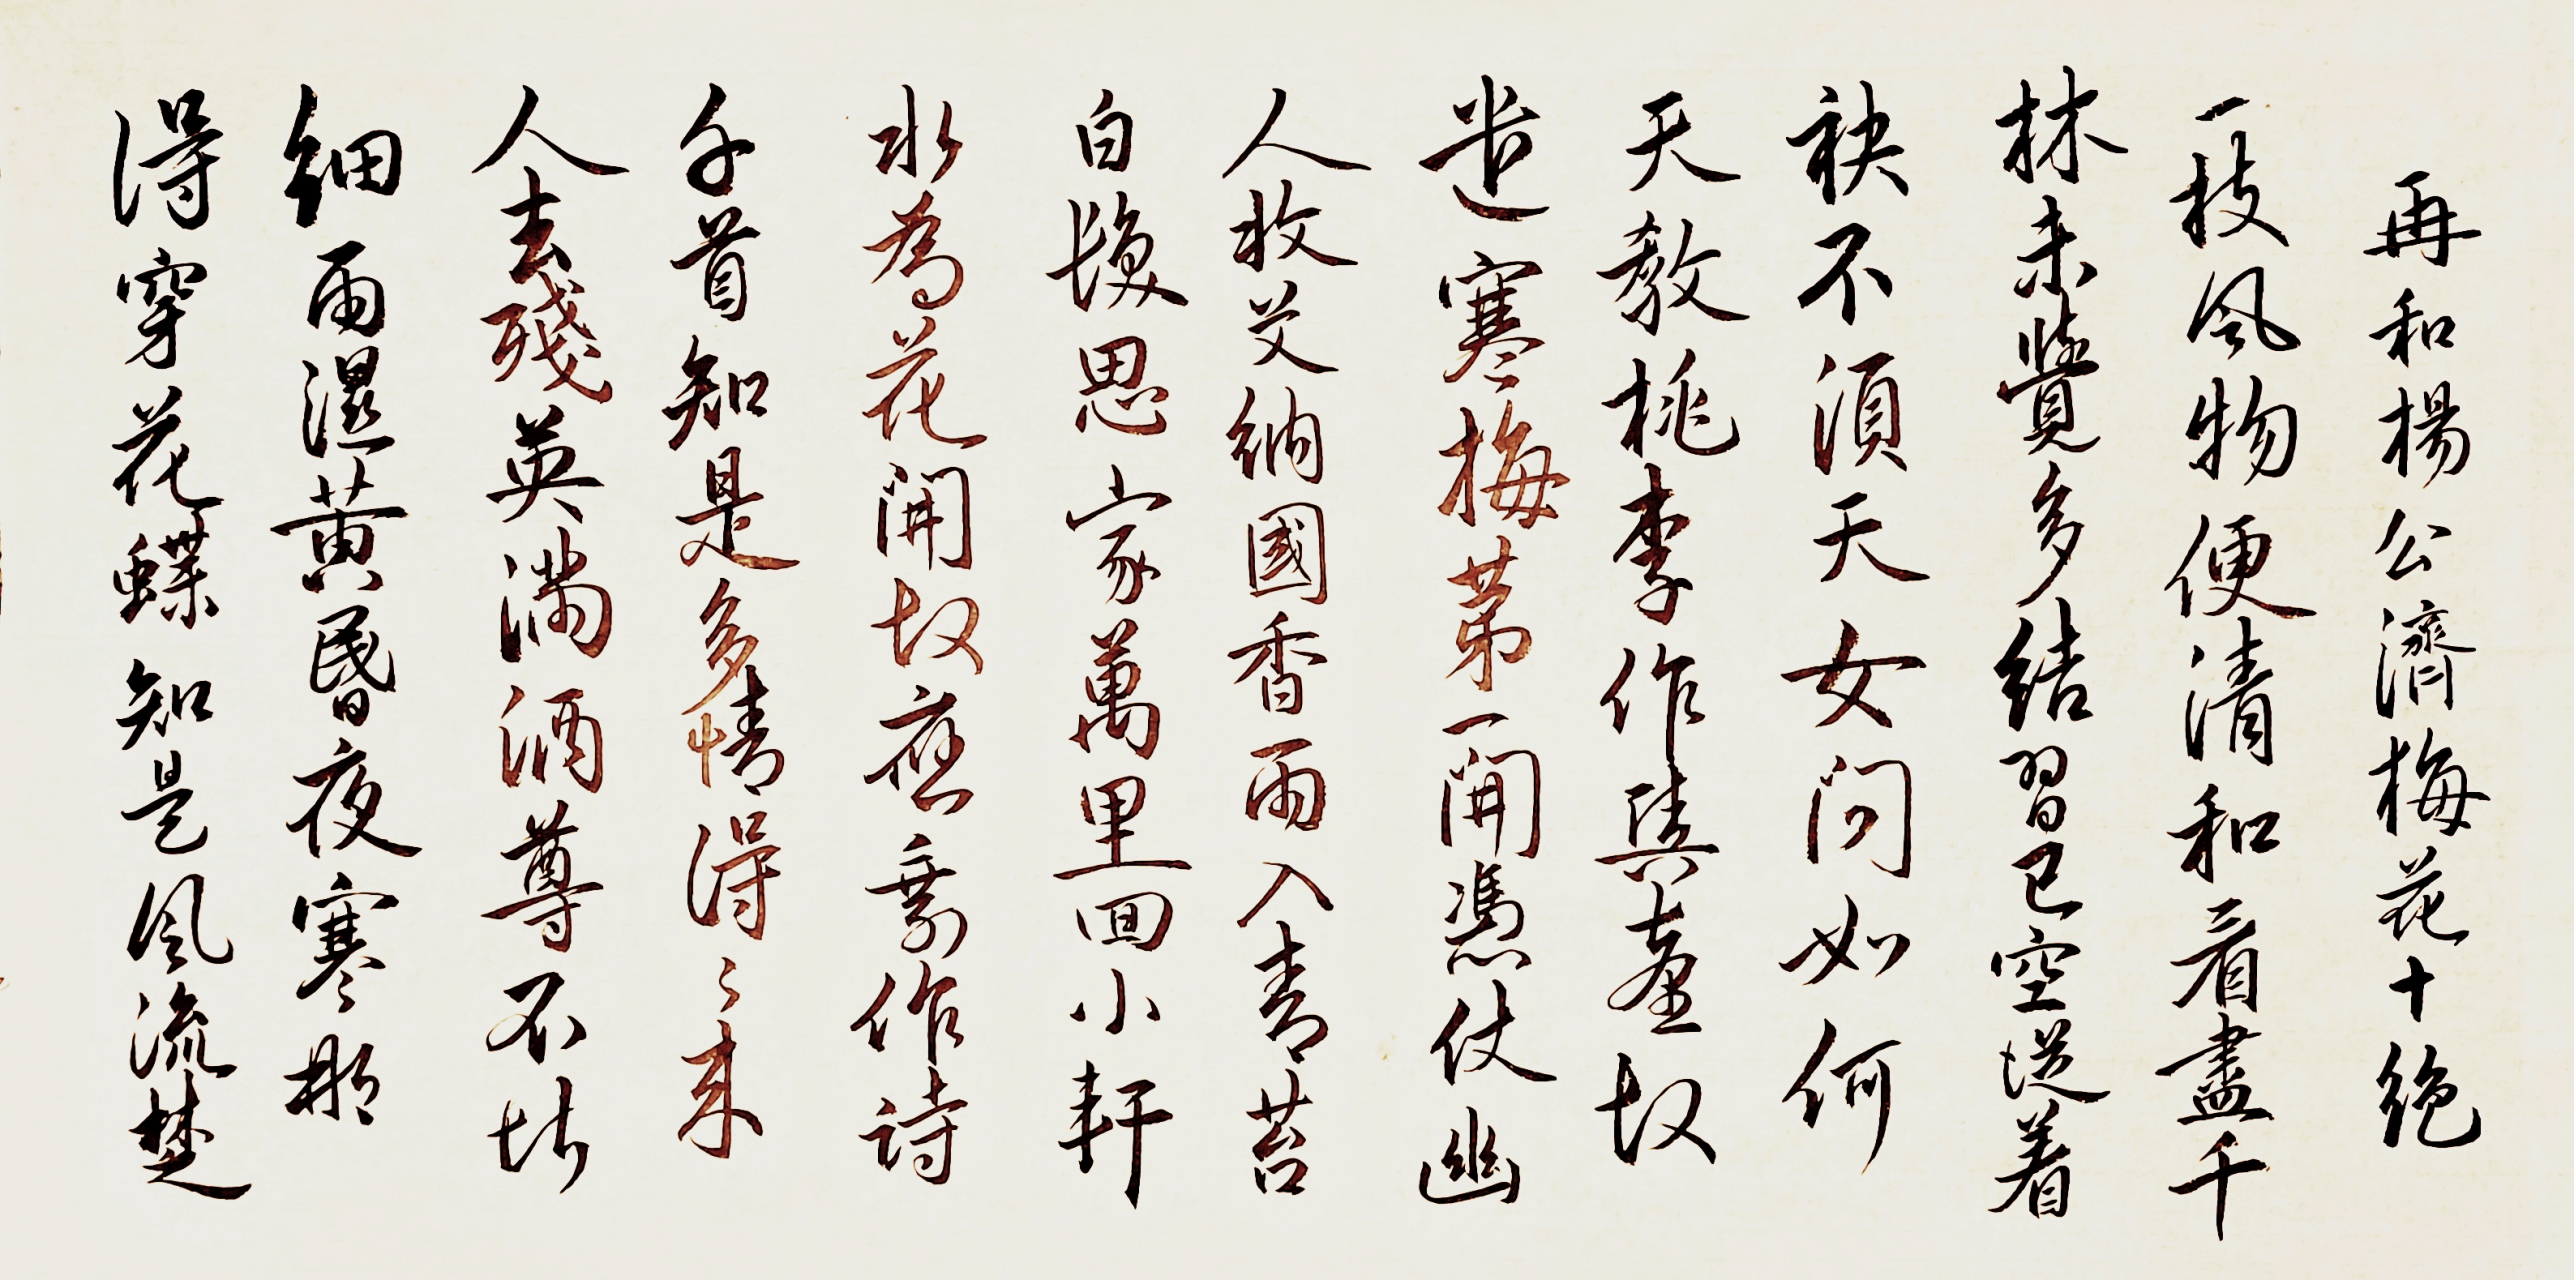 再和楊公濟梅花十絕
一枝風物便清和看盡千
林未覺多結習已空從着
袂不須天女問如何
天教桃李作輿臺故
遣寒梅第一開憑仗幽
人收艾納國香雨入青苔
白髮思家萬里回小軒
水為花開故應剩作詩
千首知是多情得〻來
人去殘英滿酒尊不堪
細雨濕黃昏夜寒那
得穿花蝶知是風流楚